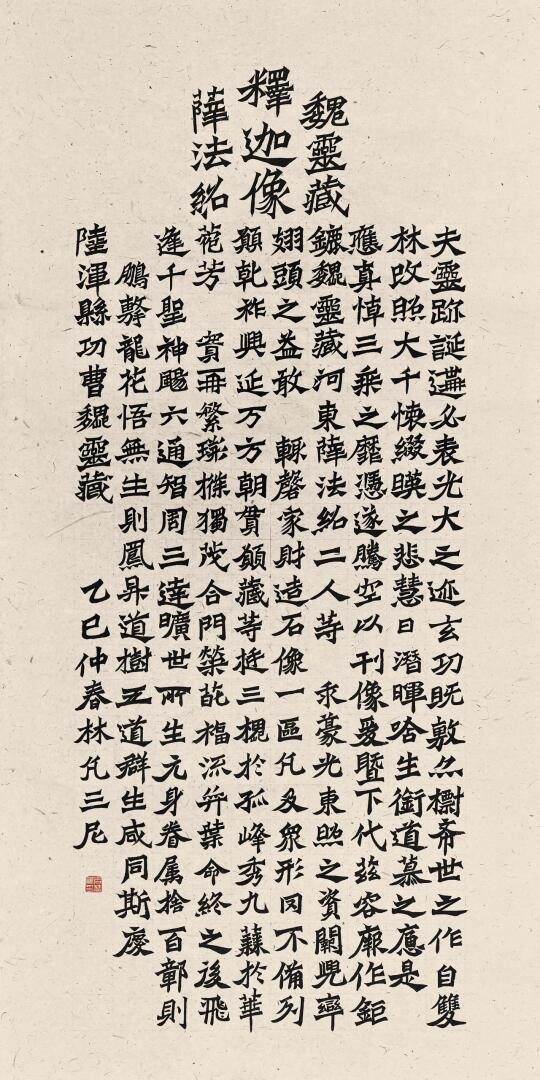 魏靈藏
釋迦像
薛法紹
夫靈跡誕遘必表光大之迹玄功既敷亦檦希世之作自雙
林改照大千懷綴暎之悲慧日潛暉唅生銜道慕之應是
應真悼三乘之靡憑遂騰空以刊像爰暨下代茲容厥作鉅
鏕魏靈藏河東薛法紹二人等 求豪光東照之資闕兜率
翅頭之益敢 輒罄家財造石像一區凡及眾形罔不備列
願乹祚興延万方朝貫願藏等挺三槐於孤峰秀九蕀於華
菀芳 賓再繁荊條獨茂合門榮葩福流奕葉命終之後飛
逢千聖神颺六通智周三達曠世所生元身眷属捨百鄣則
鵬擊龍花悟無生則鳳昇道樹五道群生咸同斯慶
陸渾縣功曹魏靈藏 乙巳仲春林凡三尼